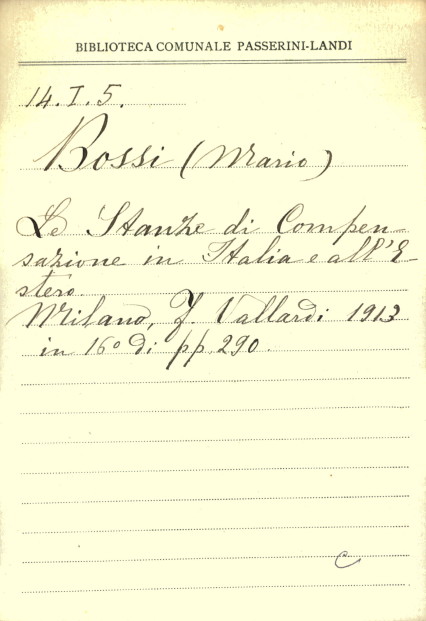 BIBLIOTECA COMUNALE PASSERINI-LANDI
14.I.5.
Bossi (Mario)
Le Stanze di Compen-
sazione in Italia e all'E-
stero
Milano, F. Vallardi 1913
in 16° di pp. 290.
C